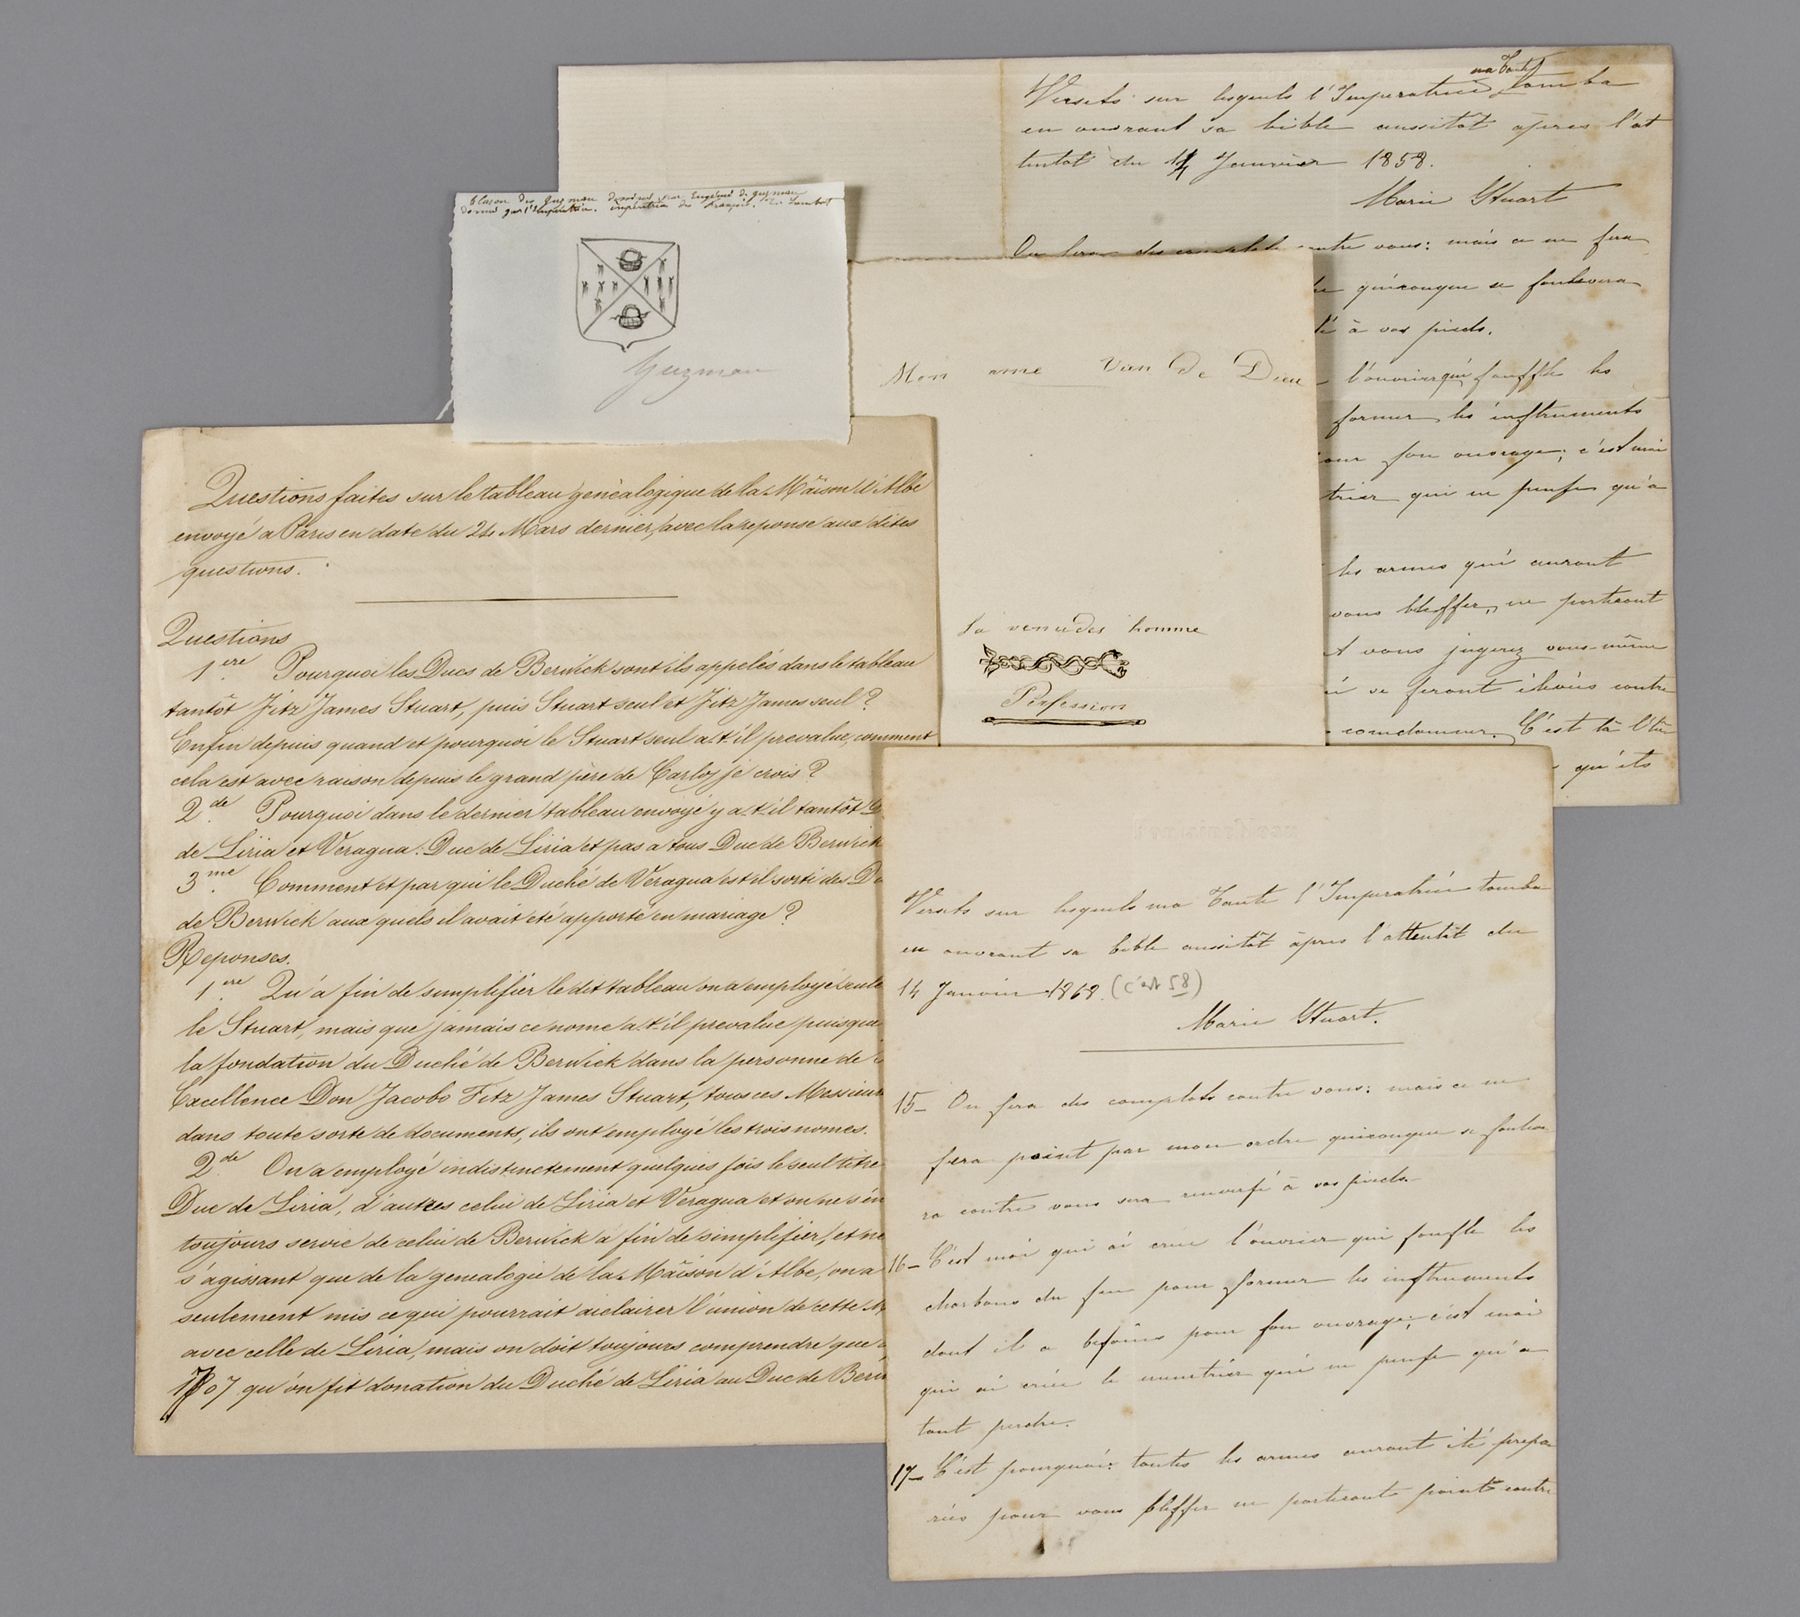 blason des Guzman dessiné par Eugénie de Guzman
donné par l'Impératrice. impératrice des français.
Guzman
Versets sur lesquels l'Imperatrice ma Tante tomba
en ouvrant sa bible aussitôt àpres l'at
tentat du 14 Janvier 1858.
Marie Stuart
On fera des complots contre vous: mais ce ne fera
quiconque se soulevera
à vos pieds.
l'ouvrier qui souffle les
former les instruments
son ouvrage; c'est moi
qui ne pense qu'a
les armes qui auront
vous blesser, ne porteront
vous jugerez vous-même
se seront élevées contre
C'est là l'hé
qu'ils
Mon ame Vien De Dieu
La venu des homme
Perfession
Questions faites sur le tableau génèalogique de la Mâison d'Albe
envoyé a Paris en date du 24 Mars dernier, avec la reponse aux dites
questions.
Questions
1.ere Pourquoi les Ducs de Berwick sont ils appelés dans le tableau
tantôt Fitz James Stuart, puis Stuart seul et Fitz James seul?
Enfin depuis quand et pourquoi le Stuart seul a t'il prevalue, comment
cela est avec raison depuis le grand père de Carlos je crois?
2.de Pourquoi dans le dernier tableau envoyé y a t'il tantôt D
de Liria et Veragua: Duc de Liria et pas a tous Duc de Berwick
3.me Comment et par qui le Duché de Veragua est il sorti des D
de Berwick aux quels il avait eté apporté en mariage?
Reponses.
1.ere Qu'á fin de simplifier le dit tableau on a employé seule
le Stuart, mais que jamais ce nome a t'il prevalue puisque
la fondation du Duché de Berwick dans la personne de
Excellence Don Jacobo Fitz James Stuart, tous ces Messieur
dans toute sorte de documents, ils ont employé les trois nomes.
2.de On a employé indistinctement quelques fois le seul titre
Duc de Liria, d'autres celui de Liria et Veragua et on ne s'én
toujours servie de celui de Berwick a fin de simplifier, et ne
s'agissant que de la genealogie de la Mâison d'Albe, on a
seulement mis ce qui pourrait aiclairer l'union de cette M
avec celle de Liria, mais on doit toujours comprendre que
1707 qu'ón fit donation du Duché de Liria au Duc de Berw
Versets sur lesquels ma Tante l'Imperatrice tomba
en ouvrant sa bible aussitôt àpres l'attentât du
14 Janvier 1868. (c'est 58)
Marie Stuart.
15_ On fera des complots contre vous: mais ce ne
sera point par mon ordre quiconque se souleve
ra contre vous sera renversé à vos pieds.
16_ C'est moi qui ai crée l'ouvrier qui soufle les
charbons du feu pour former les instruments
dont il a besoins pour son ouvrage; c'est moi
qui ai crée le meurtrier qui ne pense qu'a
tout perdre.
17_ C'est pourquoi: toutes les armes auront été prepa
rées pour vous blesser ne porteront point contre